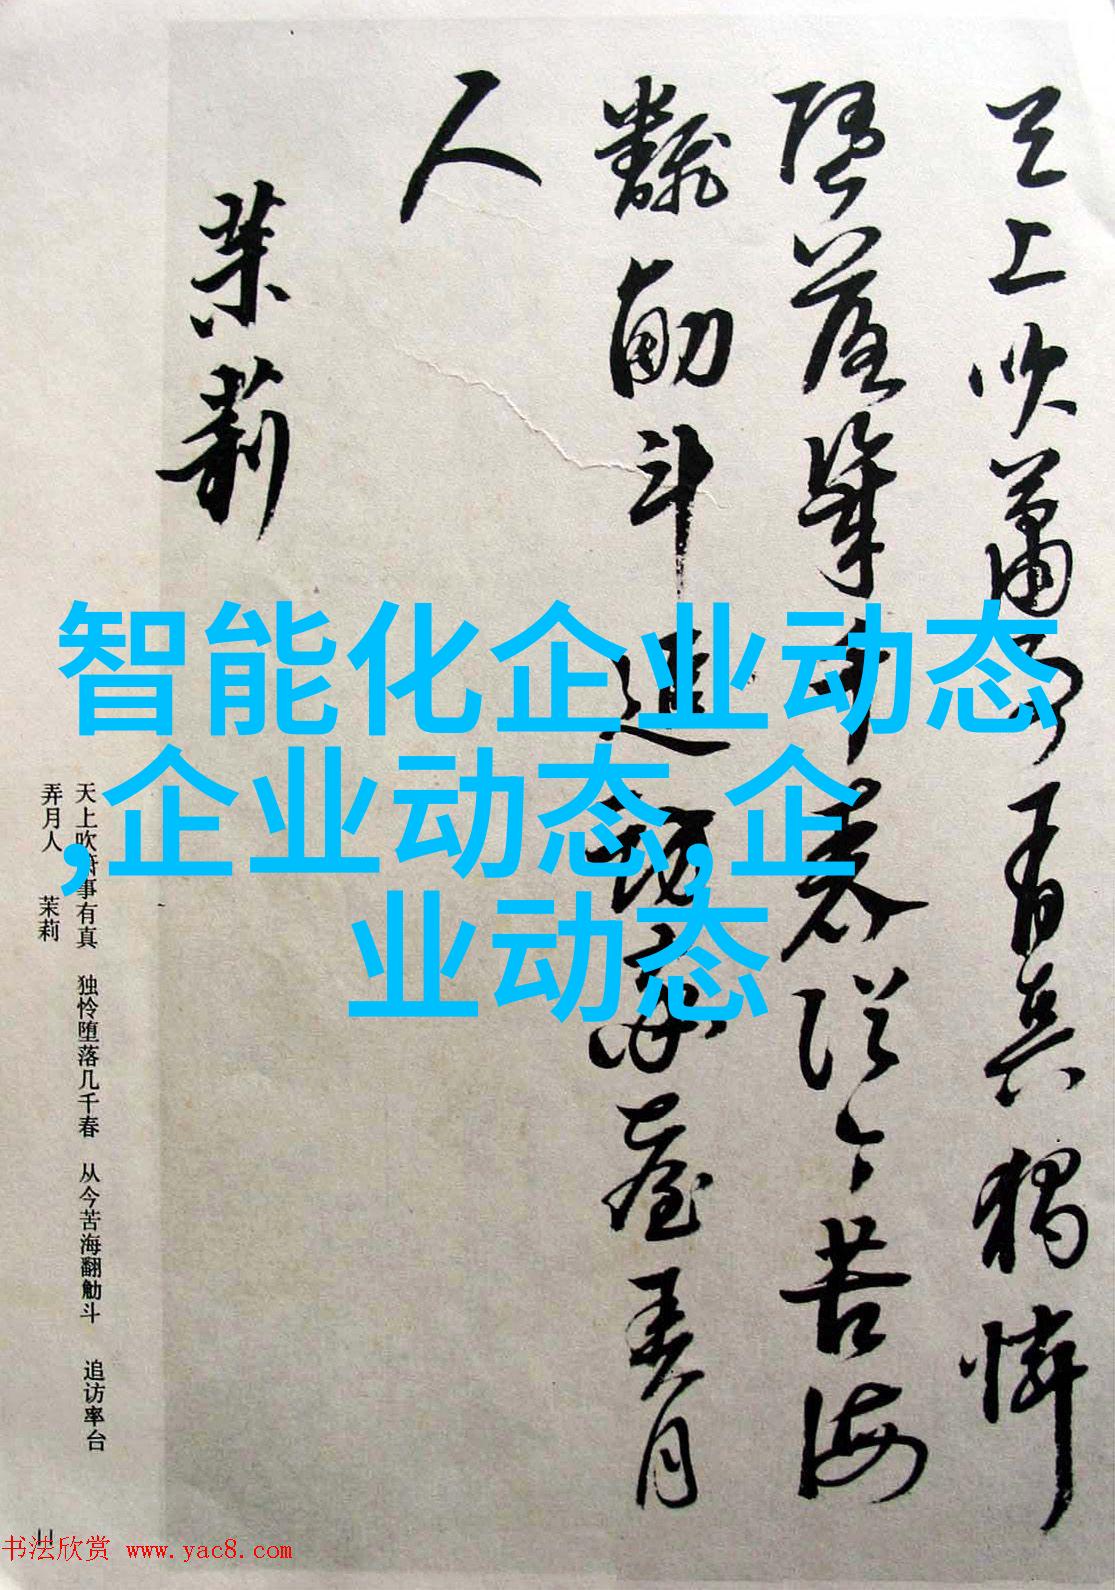 天上吹蕭事有真獨憐
墮落幾千春從今苦海
飜觔斗追訪率臺弄月
人
茉莉
智能化企业动态
,企业动态,企
业动态
天上吹箫事有真 独怜堕落几千春 从今苦海翻觔斗 追访率台
弄月人 茉莉
11
书法欣赏 www.yac8.com